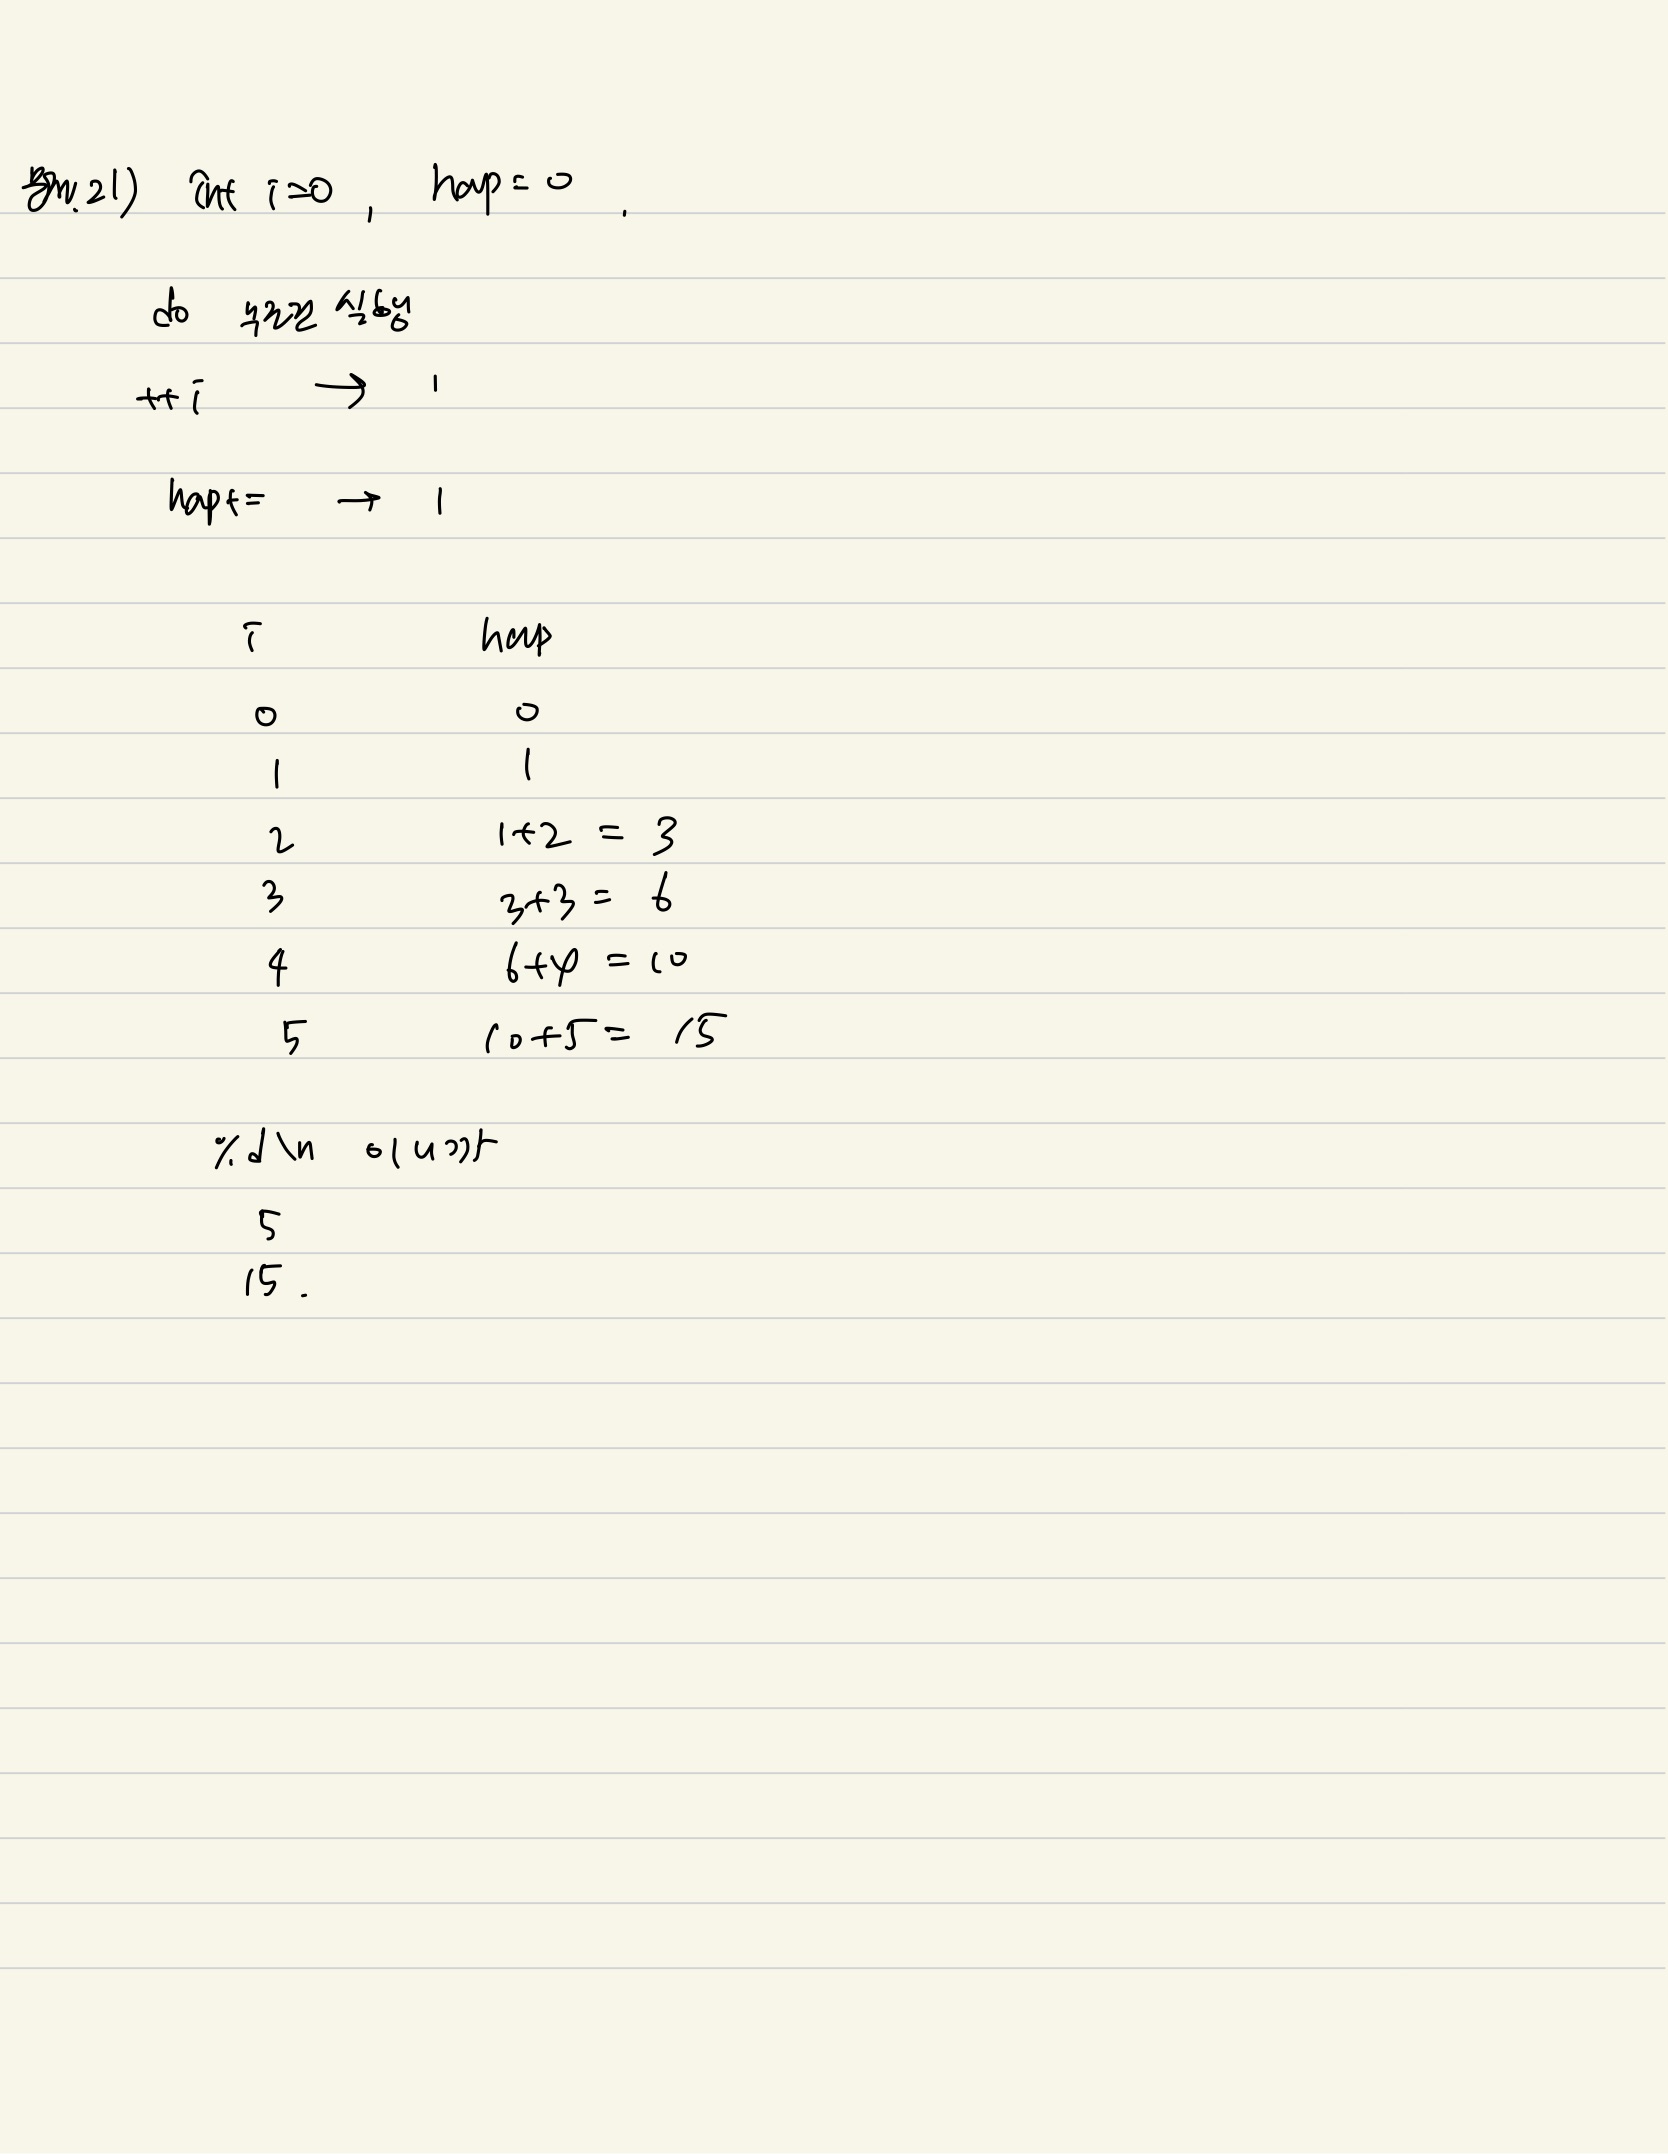 21) int i=0, hap=0.
do 무조건 실행
++i → 1
hap+= → 1
i hap
0 0
1 1
2 1+2 = 3
3 3+3 = 6
4 6+4 = 10
5 10+5 = 15
%d\n 이니까
5
15.